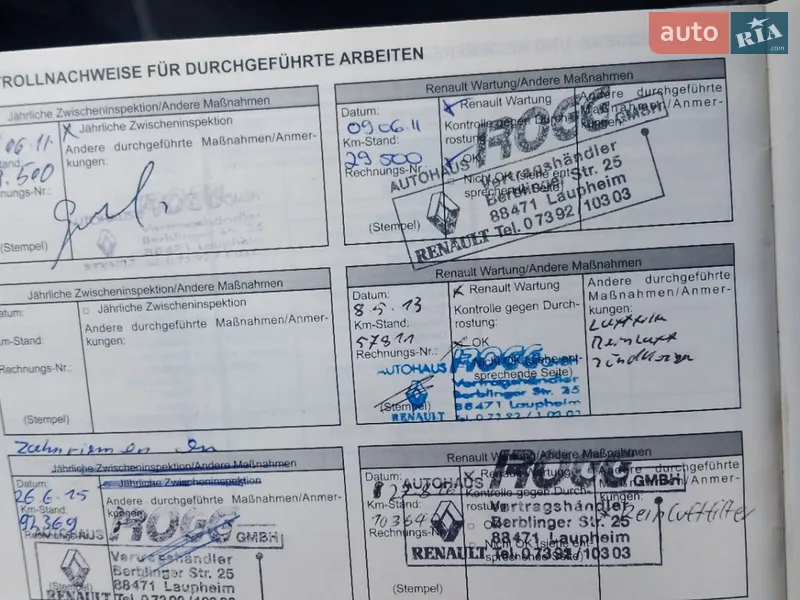 auto RIA.com
TROLLNACHWEISE FÜR DURCHGEFÜHRTE ARBEITEN
Jährliche Zwischeninspektion/Andere Maßnahmen
06.11.
Jährliche Zwischeninspektion
Andere durchgeführte Maßnahmen/Anmer-
kungen:
.500
nungs-Nr.:
(Stempel)
Renault Wartung/Andere Maßnahmen
Datum:
09.06.11
Km-Stand:
29 500
Rechnungs-Nr.:
(Stempel)
Renault Wartung
Kontrolle gegen Durch-
rostung:
OK
Nicht OK (siehe ent-
sprechende Seite)
Andere durchgeführte
Maßnahmen/Anmer-
kungen:
AUTOHAUS ROGG GMBH
Vertragshändler
Berblinger Str. 25
88471 Laupheim
RENAULT Tel. 0 73 92 / 103 03
Jährliche Zwischeninspektion/Andere Maßnahmen
atum:
Km-Stand:
Rechnungs-Nr.:
(Stempel)
Jährliche Zwischeninspektion
Andere durchgeführte Maßnahmen/Anmer-
kungen:
Renault Wartung/Andere Maßnahmen
Datum:
8.5.13
Km-Stand:
57811
Rechnungs-Nr.:
(Stempel)
Renault Wartung
Kontrolle gegen Durch-
rostung:
OK
Nicht OK (siehe ent-
sprechende Seite)
Andere durchgeführte
Maßnahmen/Anmer-
kungen:
AUTOHAUS ROGG
Vertragshändler
Berblinger Str. 25
88471 Laupheim
RENAULT
Zahnriemen
Jährliche Zwischeninspektion/Andere Maßnahmen
Datum:
26.6.15
Km-Stand:
92369
Rechnungs-Nr.:
(Stempel)
Jährliche Zwischeninspektion
Andere durchgeführte Maßnahmen/Anmer-
kungen:
AUTOHAUS ROGG GMBH
Vertragshändler
Berblinger Str. 25
88471 Laupheim
RENAULT
Renault Wartung/Andere Maßnahmen
Datum:
Km-Stand:
Rechnungs-Nr.:
(Stempel)
Renault Wartung
Kontrolle gegen Durch-
rostung:
OK
Nicht OK (siehe ent-
sprechende Seite)
Andere durchgeführte
Maßnahmen/Anmer-
kungen:
Reinluftfilter
AUTOHAUS ROGG GMBH
Vertragshändler
Berblinger Str. 25
88471 Laupheim
RENAULT Tel. 0 73 92 / 103 03